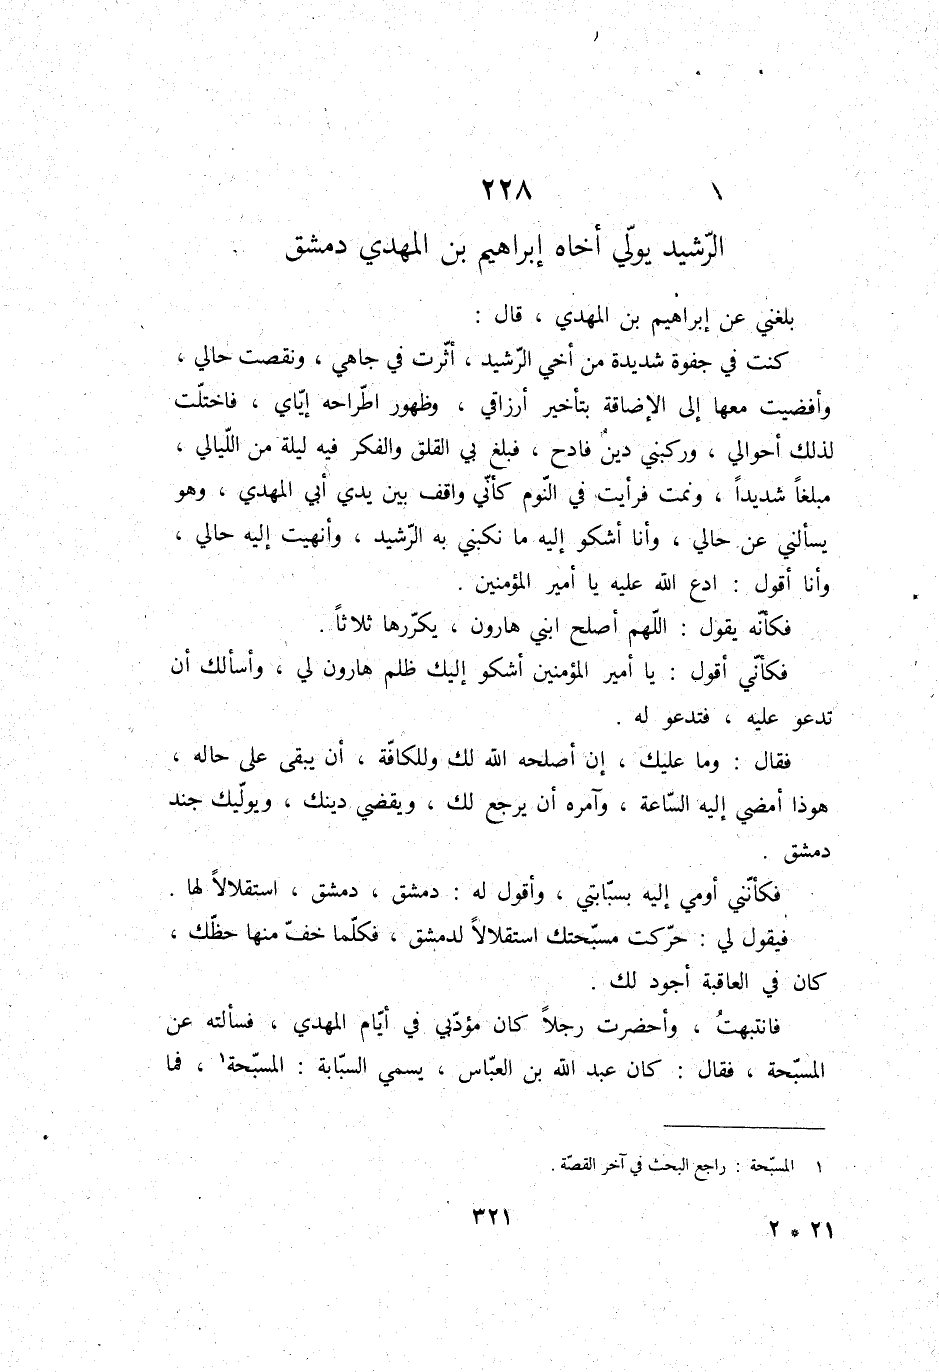 ٢٢٨
الرّشيد يولّي أخاه إبراهيم بن المهدي دمشق
بلغني عن إبراهيم بن المهدي ، قال :
كنت في جفوة شديدة من أخي الرّشيد ، أثّرت في جاهي ، ونقصت حالي ،
وأفضيت معها إلى الإضاقة بتأخير أرزاقي ، وظهور اطّراحه إيّاي ، فاختلّت
لذلك أحوالي ، وركبني دينٌ فادح ، فبلغ بي القلق والفكر فيه ليلة من اللّيالي ،
مبلغاً شديداً ، ونمت فرأيت في النّوم كأنّي واقف بين يدي أبي المهدي ، وهو
يسألني عن حالي ، وأنا أشكو إليه ما نكبني به الرّشيد ، وأنهيت إليه حالي ،
وأنا أقول : ادع الله عليه يا أمير المؤمنين .
فكأنّه يقول : اللّهم أصلح ابني هارون ، يكرّرها ثلاثاً .
فكأنّي أقول : يا أمير المؤمنين أشكو إليك ظلم هارون لي ، وأسألك أن
تدعو عليه ، فتدعو له .
فقال : وما عليك ، إن أصلحه الله لك وللكافّة ، أن يبقى على حاله ،
هوذا أمضي إليه السّاعة ، وآمره أن يرجع لك ، ويقضي دينك ، ويولّيك جند
دمشق .
فكأنّني أومي إليه بسبّابتي ، وأقول له : دمشق ، دمشق ، استقلالاً لها .
فيقول لي : حرّكت مسبّحتك استقلالاً لدمشق ، فكلّما خفّ منها حظّك ،
كان في العاقبة أجود لك .
فانتبهتُ ، وأحضرت رجلاً كان مؤدّبي في أيّام المهدي ، فسألته عن
المسبّحة ، فقال : كان عبد الله بن العبّاس ، يسمي السبّابة : المسبّحة١ ، فما
١ المسبّحة : راجع البحث في آخر القصّة .
٣٢١
٢١ * ٢